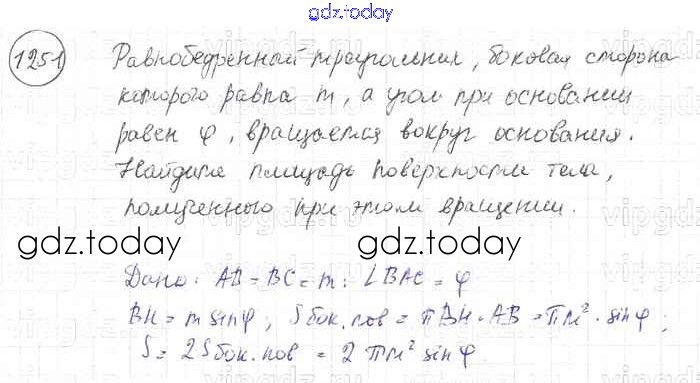 gdz.today
1251
Равнобедренный треугольник, боковая сторона
которого равна m, а угол при основании
равен φ, вращается вокруг основания.
Найдите площадь поверхности тела,
полученного при этом вращении.
gdz.today gdz.today
Дано: AB = BC = m; ∠BAC = φ
BH = m sinφ; Sбок.пов = πBH·AB = πm²·sinφ;
S = 2Sбок.пов = 2πm² sinφ.